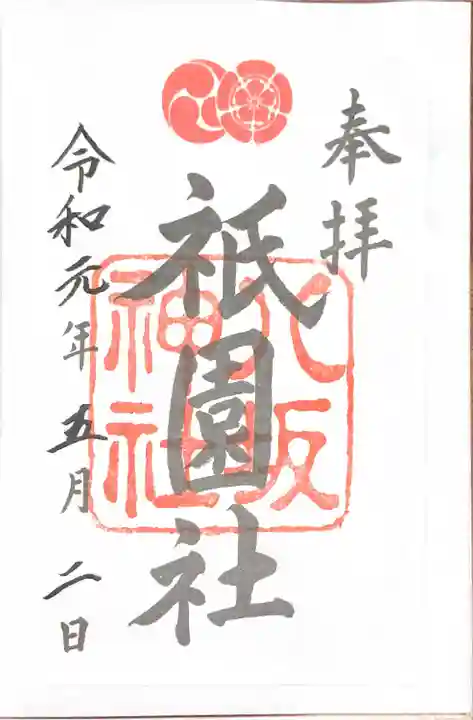 奉拝
祇園社
八阪
神社
令和元年五月二日